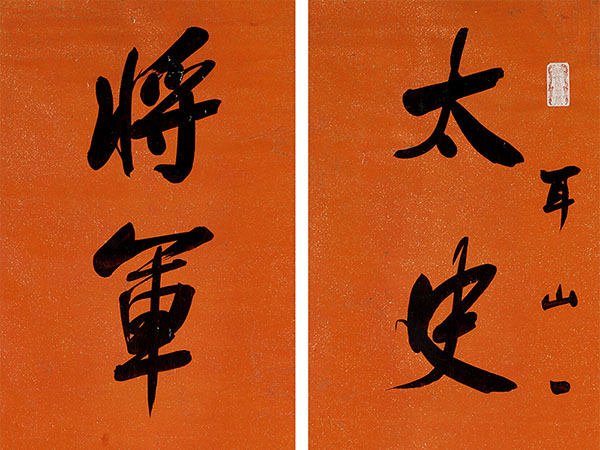 耳山
太史
將軍